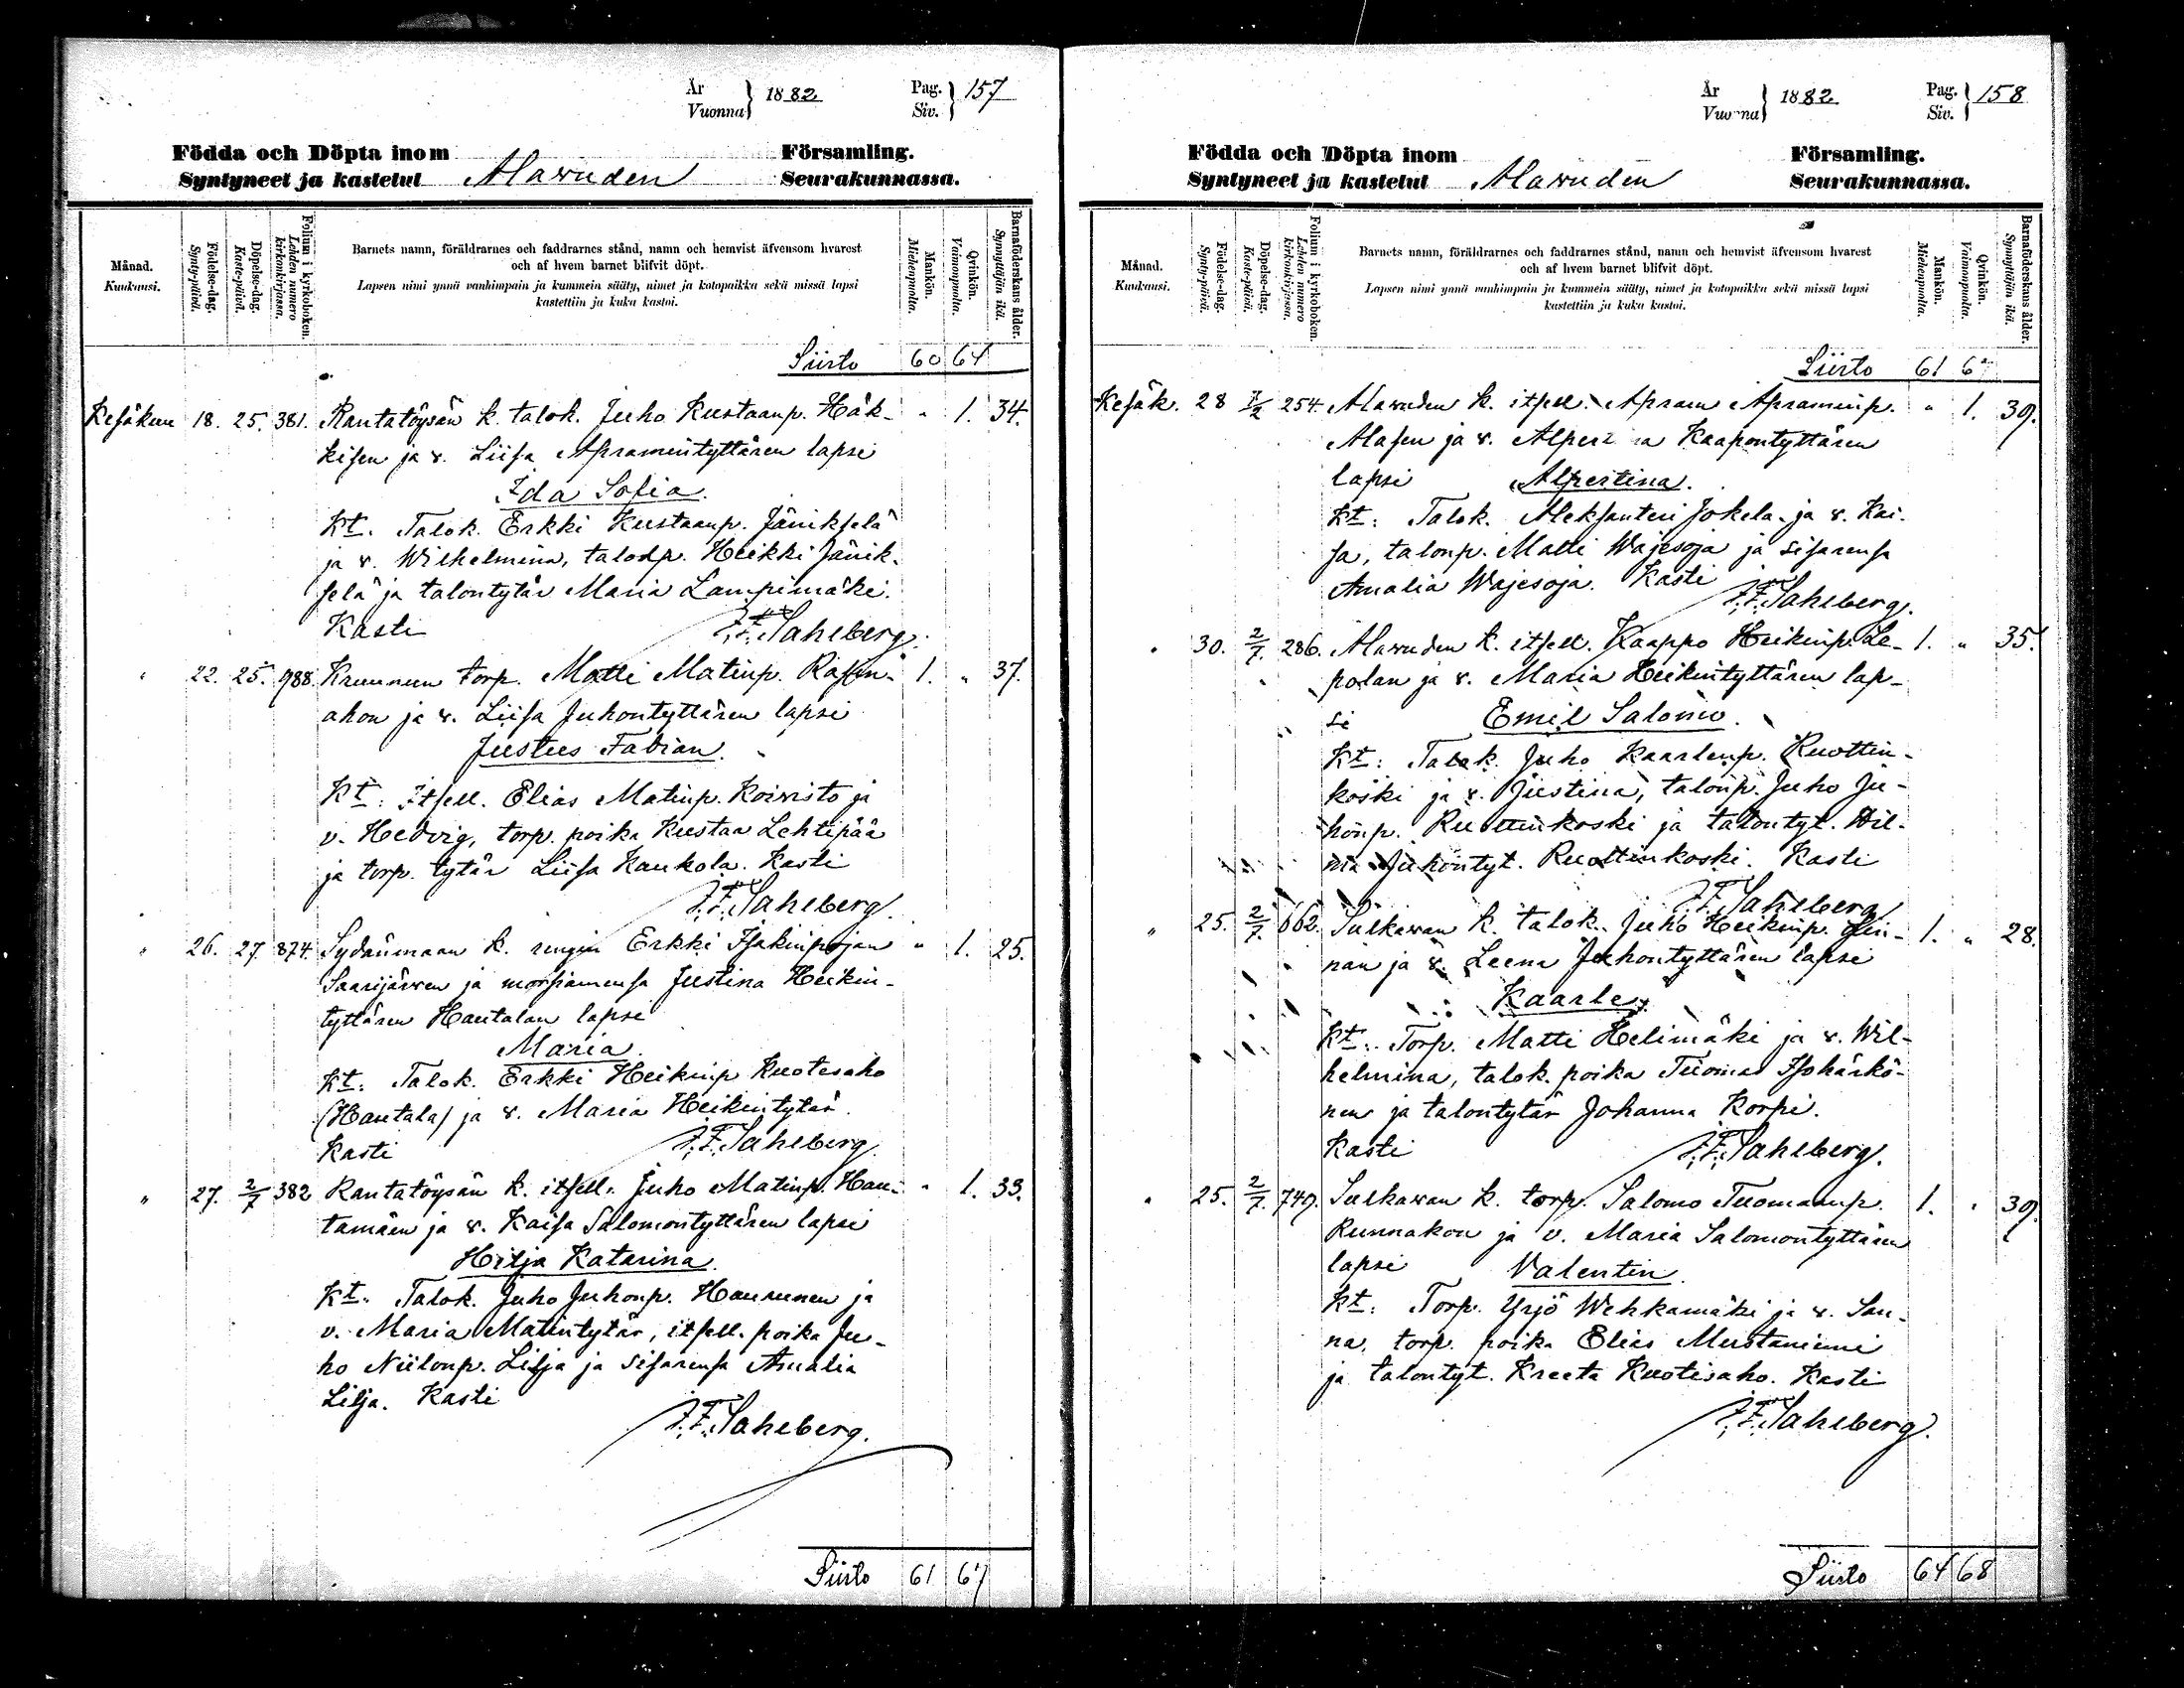 År
Vuonna
1882
Pag.
Siv.
157
Födda och Döpta inom Församling.
Syntyneet ja kastetut Alawuden Seurakunnassa.
Månad.
Kuukausi.
Födelse-dag.
Synty-päivä.
Döpelse-dag.
Kaste-päivä.
Folium i kyrkoboken.
Lehden numero kirkonkirjassa.
Barnets namn, föräldrarnes och faddrarnes stånd, namn och hemvist äfvensom hvarest
och af hvem barnet blifvit döpt.
Lapsen nimi ynnä vanhimpain ja kummein sääty, nimet ja kotopaikka sekä missä lapsi
kastettiin ja kuka kastoi.
Mankön.
Miehenpuolta.
Qvinkön.
Vaimonpuolta.
Barnaföderskans ålder.
Synnyttäjän ikä.
Siirto 60 64
Kesäkuu 18. 25. 381. Rantatöysän k. talok. Juho Kustaanp. Häk- " 1. 34.
kisen ja v. Liisa Apramintyttären lapsi
Ida Sofia.
Kt. Talok. Erkki Kustaanp. Jänikselä
ja v. Wilhelmina, talonp. Heikki Jänik-
selä ja talontytär Maria Lampimäki.
Kasti J.F. Sahlberg.
" 22. 25. 988. Kruunun torp. Matti Matinp. Rasin- 1. " 37.
ahon ja v. Liisa Juhontyttären lapsi
Justus Fabian.
Kt: Itsell. Elias Matinp. Koivisto ja
v. Hedvig, torp. poika Kustaa Lehtipää
ja torp. tytär Liisa Kaukola. Kasti
J.F. Sahlberg.
" 26. 27. 874. Sydänmaan k. rengin Erkki Isakinpojan " 1. 25.
Saarijärwen ja morsiamensa Justina Heikin-
tyttären Hautalan lapsi
Maria.
Kt: Talok. Erkki Heikinp. Kuotesaho
(Hautala) ja v. Maria Heikintytär.
Kasti J.F. Sahlberg.
" 27. 2/7 382 Rantatöysän k. itsell. Juho Matinp. Hau- " 1. 33.
tamäen ja v. Kaisa Salomontyttären lapsi
Hilja Katarina.
Kt: Talok. Juho Juhonp. Haurunen ja
v. Maria Matintytär, itsell. poika Ju-
ho Niilonp. Lilja ja sisarensa Amalia
Lilja. Kasti
J.F. Sahlberg.
Siirto 61 67
År
Vuonna
1882
Pag.
Siv.
158
Födda och Döpta inom Församling.
Syntyneet ja kastetut Alawuden Seurakunnassa.
Månad.
Kuukausi.
Födelse-dag.
Synty-päivä.
Döpelse-dag.
Kaste-päivä.
Folium i kyrkoboken.
Lehden numero kirkonkirjassa.
Barnets namn, föräldrarnes och faddrarnes stånd, namn och hemvist äfvensom hvarest
och af hvem barnet blifvit döpt.
Lapsen nimi ynnä vanhimpain ja kummein sääty, nimet ja kotopaikka sekä missä lapsi
kastettiin ja kuka kastoi.
Mankön.
Miehenpuolta.
Qvinkön.
Vaimonpuolta.
Barnaföderskans ålder.
Synnyttäjän ikä.
Siirto 61 67
Kesäk. 28 254. Alawuden k. itsell. Apram Apraminp. " 1. 39.
Alasen ja v. Kaapontyttären
lapsi Alpertina.
Kt: Talok. Aleksanteri Jokela ja v. Kai-
sa, talonp. Matti Wajesoja ja sisarensa
Amalia Wajesoja. Kasti
J.F. Sahlberg.
" 30. 2/7. 286. Alawuden k. itsell. Kaappo Heikinp. Le- 1. " 35.
polan ja v. Maria Heikintyttären lap-
si Emil Salomo.
Kt: Talok. Juho Kaarlenp. Ruottin-
koski ja v. Justina, talonp. Juho Ju-
honp. Ruottinkoski ja talontyt. Hil-
ma Juhontyt. Ruottinkoski. Kasti
J.F. Sahlberg.
" 25. 2/7. 662. Sulkawan k. talok. Juho Heikinp. 1. " 28.
nän ja v. Leena Juhontyttären lapsi
Kaarle.
Kt: Torp. Matti Helimäki ja v. Wil-
helmina, talok. poika Tuomas Isohärkö-
nen ja talontytär Johanna Korpi.
Kasti J.F. Sahlberg.
" 25. 2/7. 749. Sulkawan k. torp. Salomo Tuomaanp. 1. " 39.
Runnakon ja v. Maria Salomontyttären
lapsi Valentin.
Kt: Torp. Yrjö Wehkamäki ja v. San-
na, torp. poika Elias Mustaniemi
ja talontyt. Kreeta Kuotisaho. Kasti
J.F. Sahlberg.
Siirto 64 68